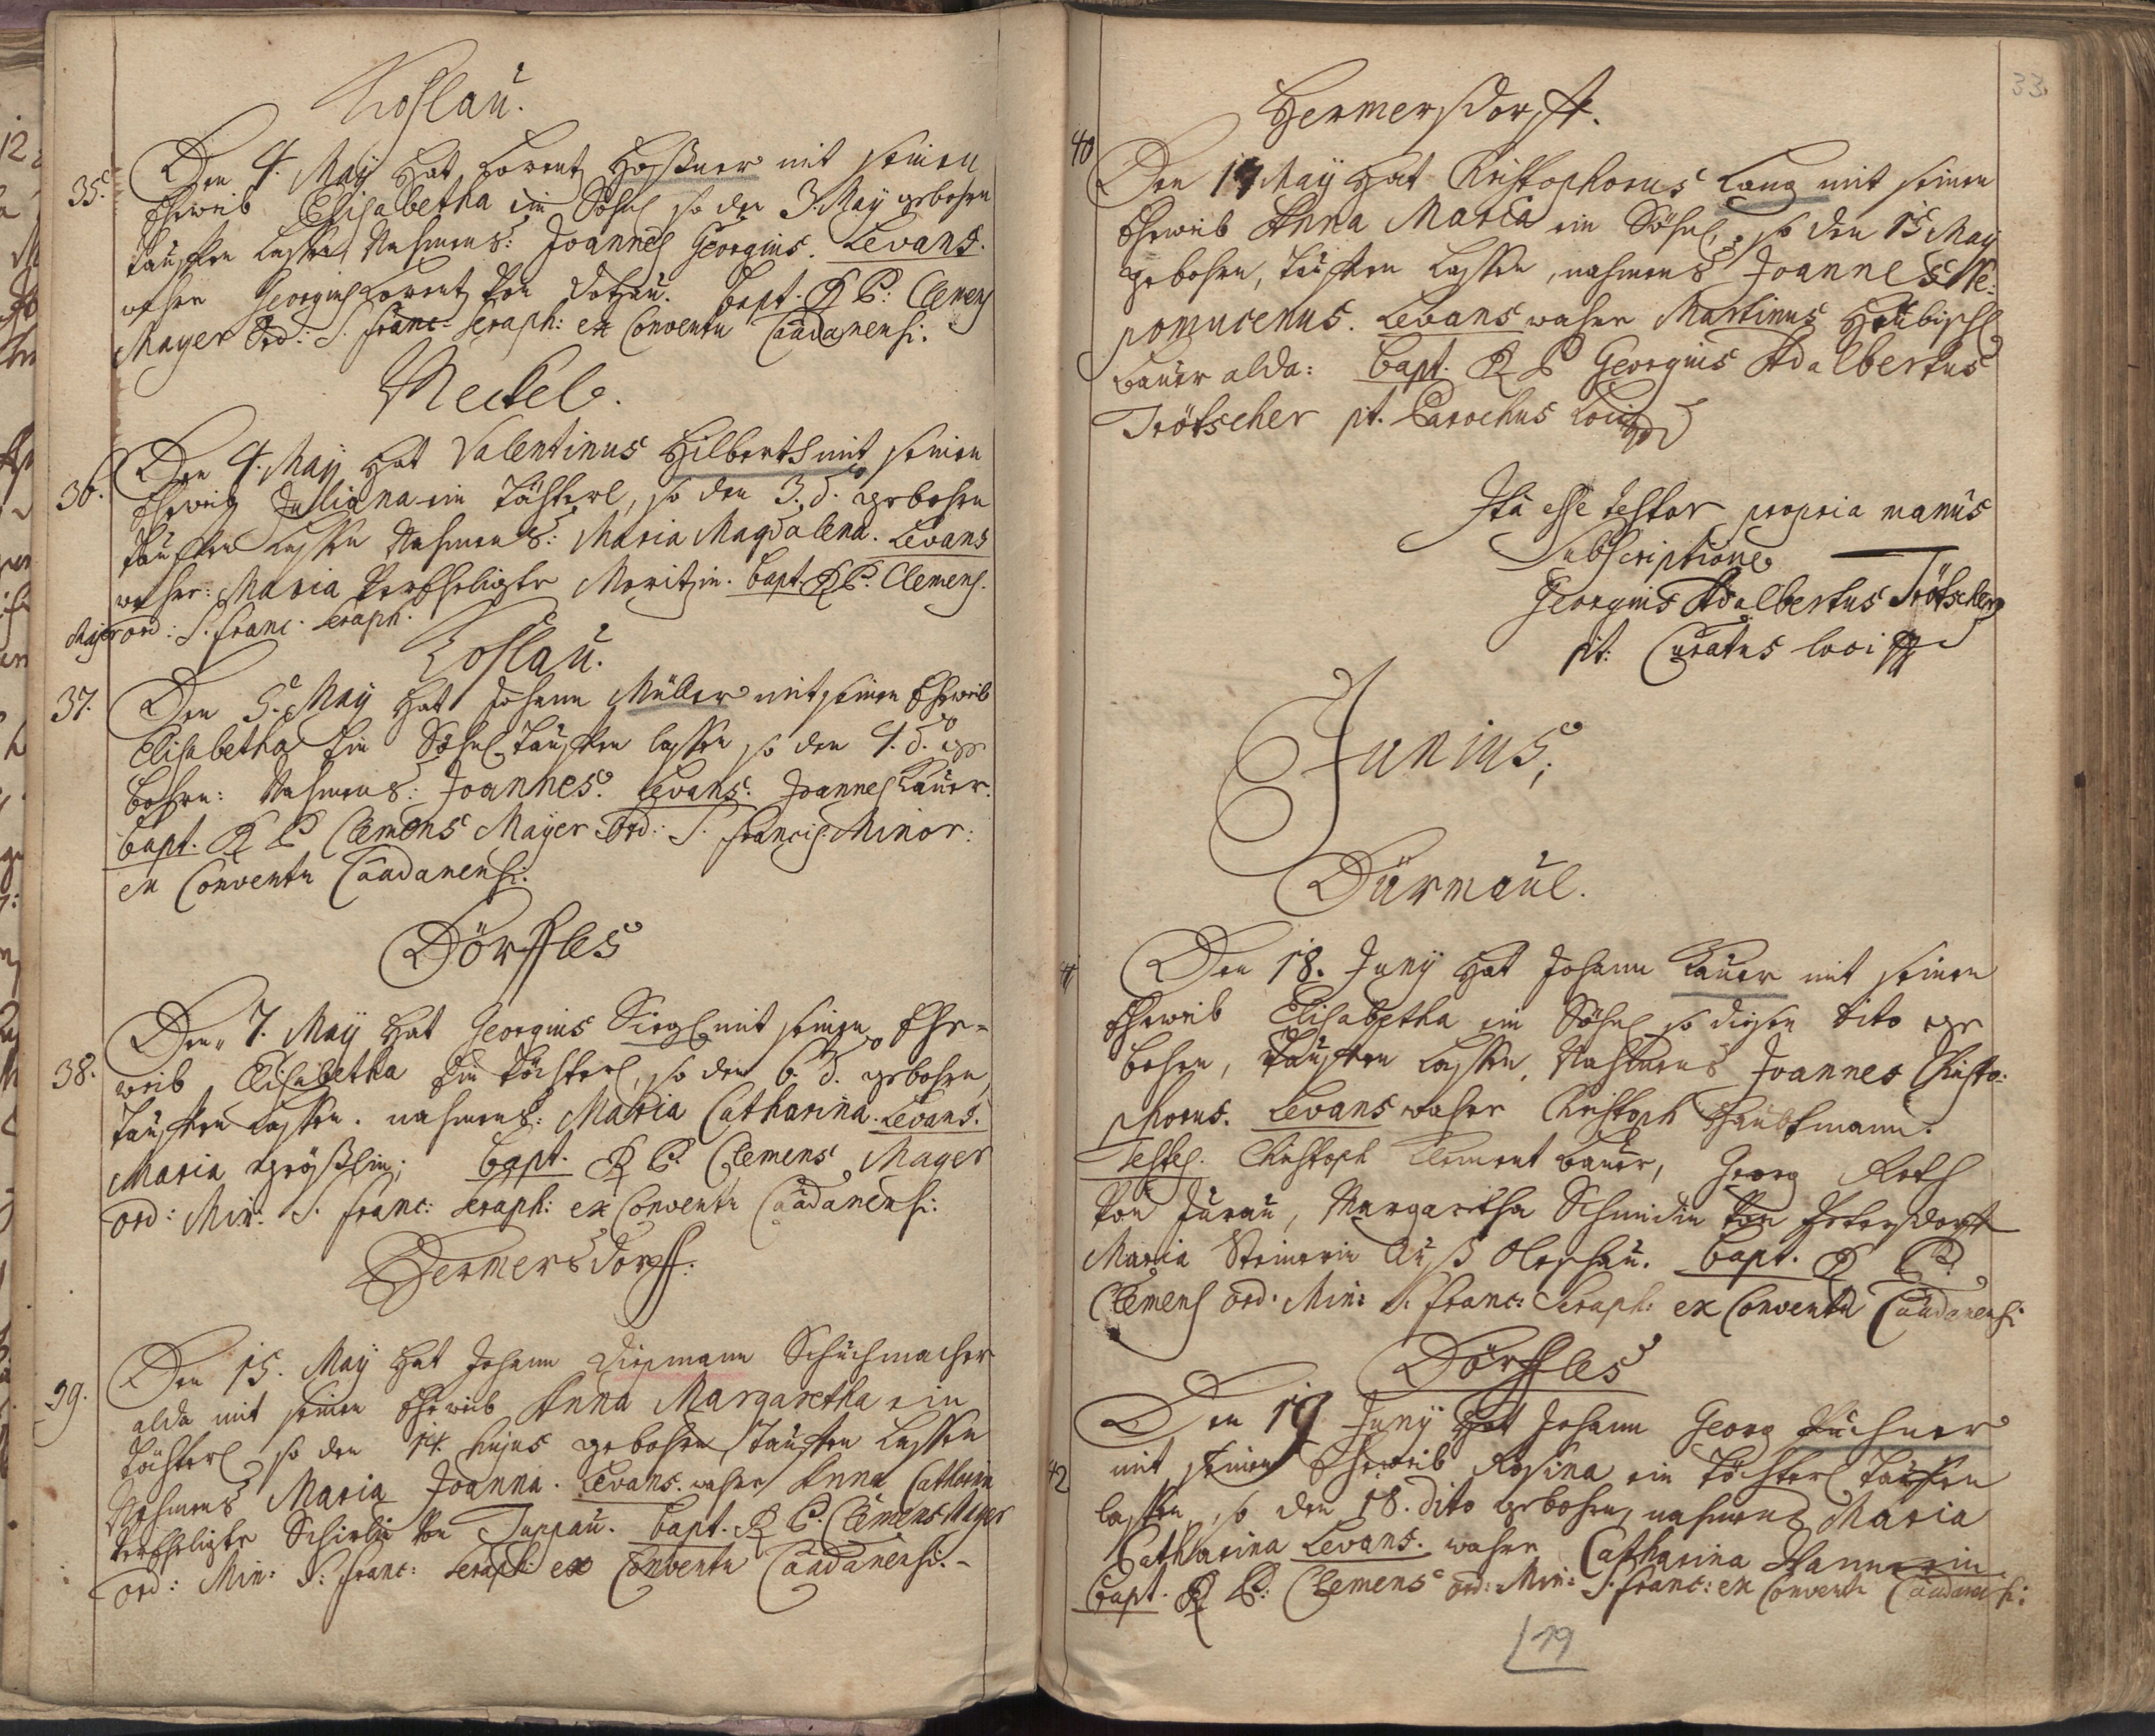 Koslau.
35. Den 4. May hat Lorentz Haßner mit seinen
Eheweib Elisabetha ein Söhnl so den 3. May gebohrn
tauffen lassen Nahmens: Joannes Georgius. Levans.
wahre Georgius Lorentz von. Bapt. R P: Clemens
Mayer Ord: S. Franc: Seraph: ex Conventu Caadanensi.
Meckel.
36. Den 4. May hat Valentinus Hilberth mit seinen
Eheweib Juliana ein Töchterl, so den 3. d. gebohrn
tauffen lassen Nahmens: Maria Magdalena. Levans
wahre: Maria verEheligte Moritzin. bapt. R P. Clemens.
Majer ord: S. Franc. Seraph.
Koslau.
37. Den 5. May hat Johann Müller mit seinen Eheweib
Elisabetha Ein Söhnl tauffen lassen so den 4. d. ge
bohrn: Nahmens: Joannes. Levans: Joannes Lauer.
bapt. R P Clemens Mayer Ord: S. Francis. Minor:
ex Conventu Caadanensi.
Dörffles
38. Den 7. May hat Georgius Siegl mit seinen Ehe-
weib Elisabetha Ein Töchterl, so den 6. d. gebohrn,
tauffen lassen. nahmens: Maria Catharina. Levans.
Maria Größlin; bapt. R P. Clemens Mayer
ord: Min: S. Franc: Seraph: ex Conventu Caadanensi:
Hermersdorff:
39. Den 15. May hat Johann Diepmann Schuchmacher
alda mit seinen Eheweib Anna Margaretha ein
Töchterl so den 14. hujus gebohrn, tauffen lassen
Nahmens Maria Joanna. Levans. wahre Anna Catharin
verEheligte von Duppau. bapt. R P. Clemens Mayer
ord: Min: S: Franc: Seraph: ex Conventu Caadanensi.-
33.
Hermersdorff.
40 Den 17 May hat Christophorus Lang mit seinen
Eheweib Anna Maria ein Söhnl, so den 15 May
gebohrn, tauffen lassen, nahmens Joannes Ne:
pomucenus. Levans wahre Martinus Heubischl
bauer alda: bapt. R P Georgius Adalbertus
Trötscher pt. Parochus Loci
Ita esse testor propria manus
Subscriptione
Georgius Adalbertus Trötscher
pt: Curatus loci
Junius;
Dürmaul.
41 Den 18. Juny hat Johann Lauer mit seinen
Eheweib Elisabetha ein Söhnl so diesen dito ge
bohrn, tauffen lassen, Nahmens Joannes Christo:
phorus. Levans wahre Christoph Hauptmann.
Testes. Christoph Clement bauer, Georg Roth
von Jurau, Margaretha Schmidin von Petersdorff
Maria Steinerin Auß Oleschau. bapt. R P.
Clemens ord. Min: S. Franc: Seraph: ex Conventu Caadanensi:
Dörffles
42 Den 19 Juny hat Johann Georg Puchner
mit seinen Eheweib Rosina ein Töchterl tauffen
lassen, so den 18. dito gebohrn, nahmens Maria
Catharina Levans. wahre Catharina Hannerin.
bapt. R P: Clemens ord: Min: S. Franc: ex Conventu Caadanensi:
19